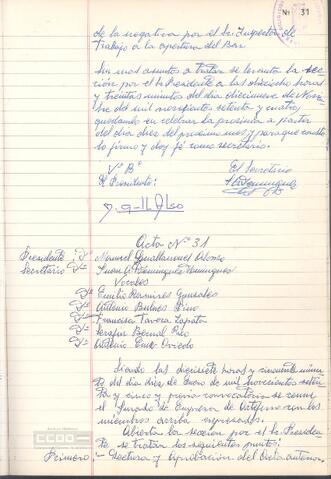 Nº 31
de la negativa por el Sr. Inspector de
Trabajo a la apertura del Bar.
Sin mas asuntos a tratar se levanta la sec
ción por el Sr. Presidente a las dieciocho horas
y treinta minutos del dia diecinueve de Novie
bre de mil novecientos setenta y cuatro,
quedando en celebrar la proxima a partir
del dia diez del proximo mes y para que conste
lo firmo y doy fé como secretario.
Vº Bº
El Secretario
El Presidente:
Acta Nº 31
Presidente Dn Manuel Alonso
Secretario Dn Juan A. Dominguez Dominguez
Vocales
Dn Emilio Ramirez Gonzalez
Dn Antonio Pino
Dn Francisco Tavora Zapata
Dn Serafin Bernal
Dn Antonio Oviedo
Siendo las diecisiete horas y cincuenta minu
tos del dia diez de Enero de mil novecientos seten
ta y cinco y previa convocatoria se reune
el Jurado de Empresa de con los
miembros arriba expresados.
Abierta la seccion por el Sr. Presiden
te se tratan los siguientes puntos:
Primero:- Lectura y aprobación del Acta anterior.
CCOO